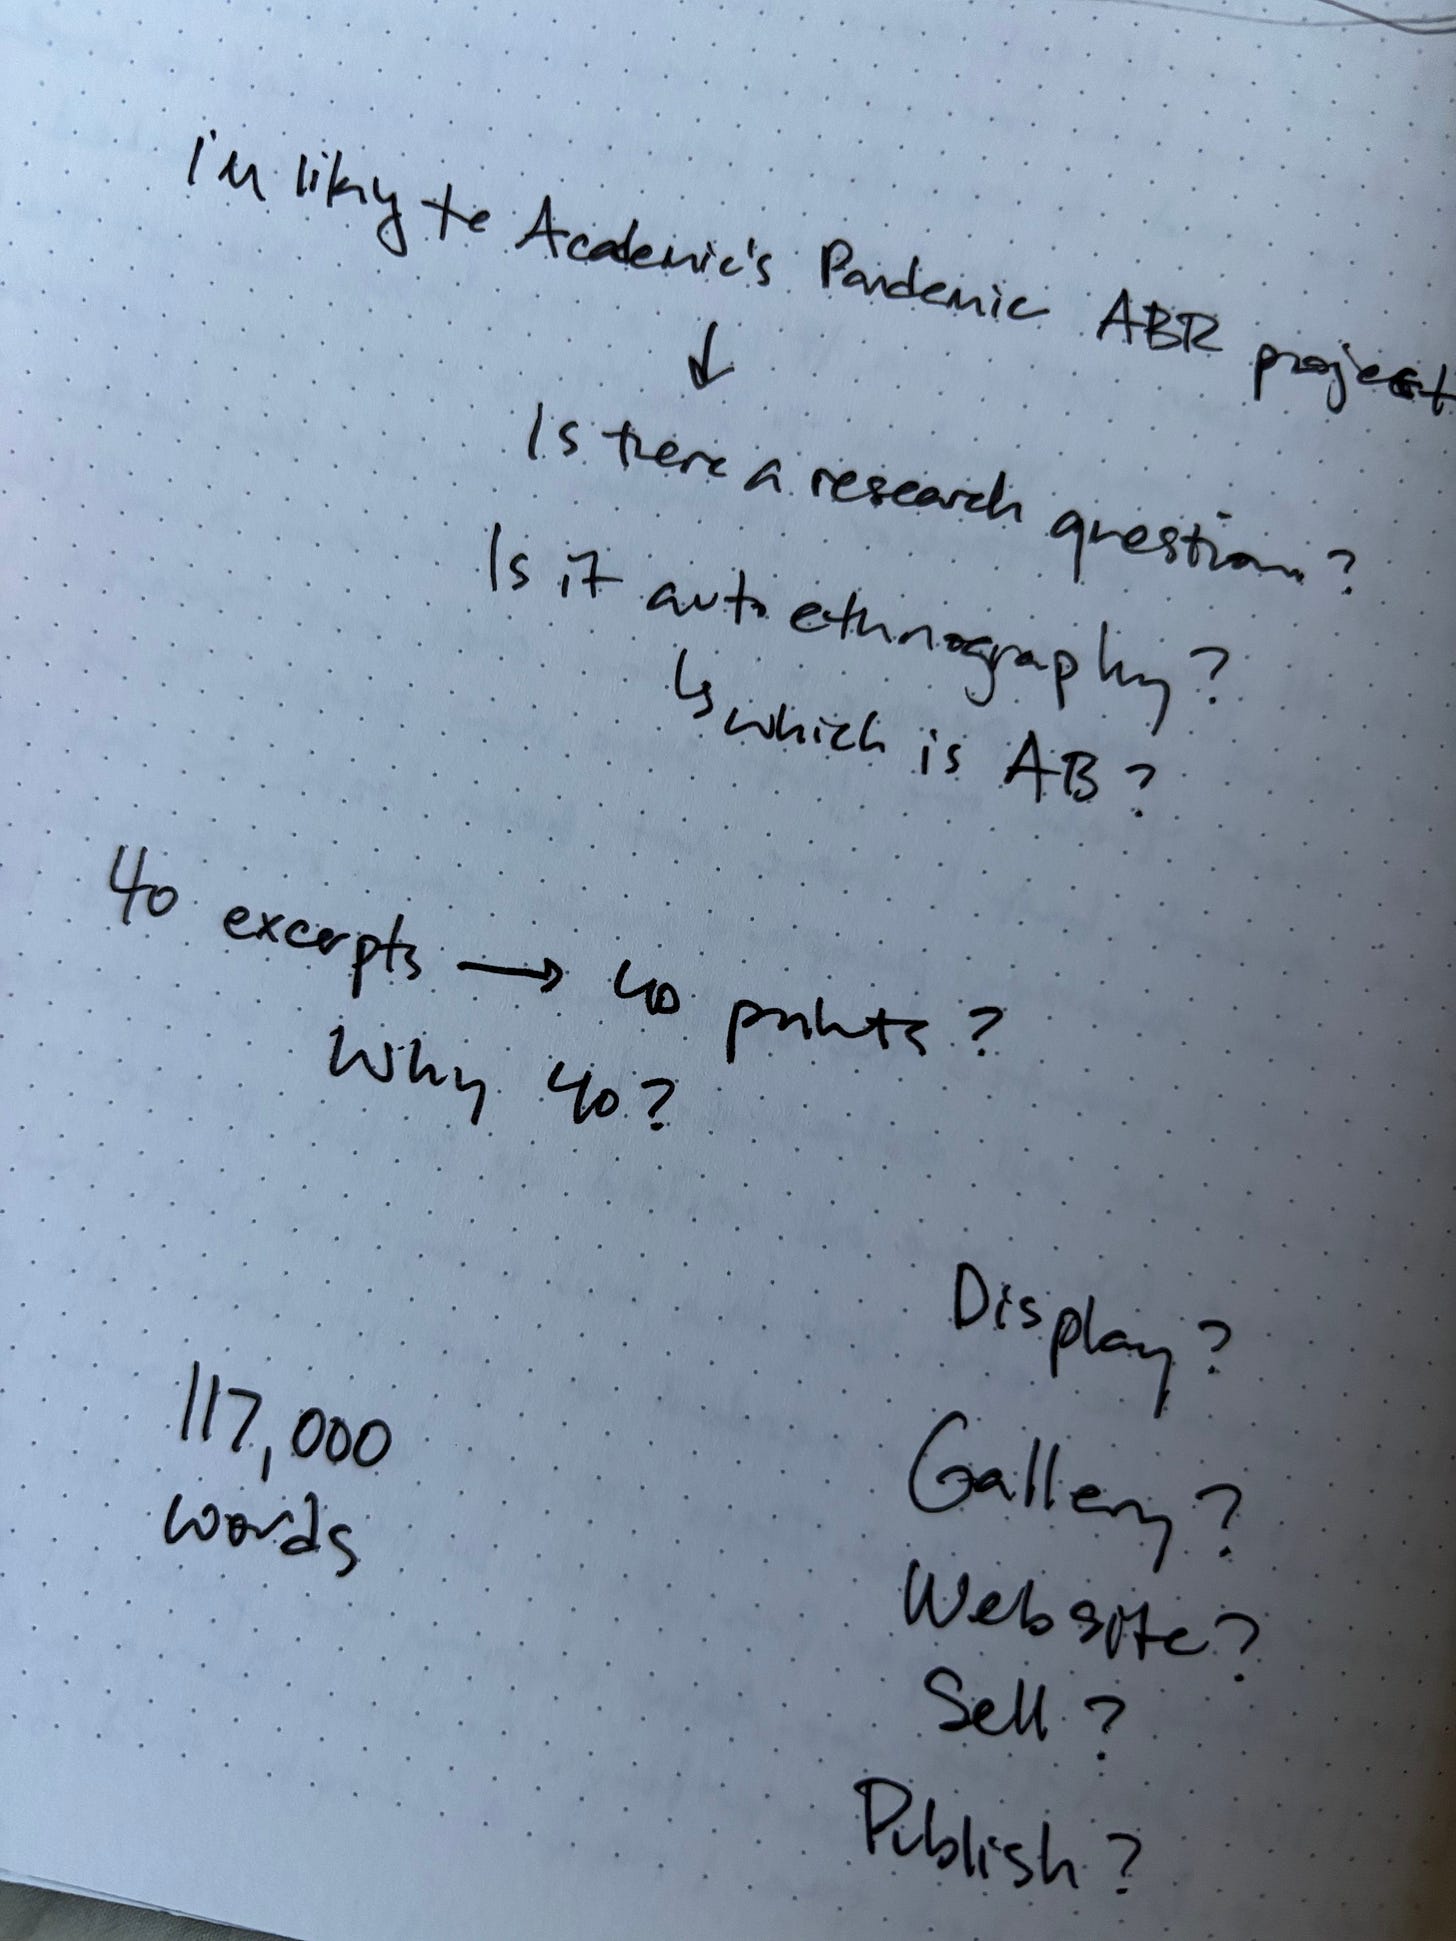 I'm liking the Academic's Pandemic ABR project
↓
Is there a research question?
Is it autoethnography?
↳ which is AB?
40 excerpts → 40 prints?
Why 40?
117,000
words
Display?
Gallery?
Website?
Sell?
Publish?